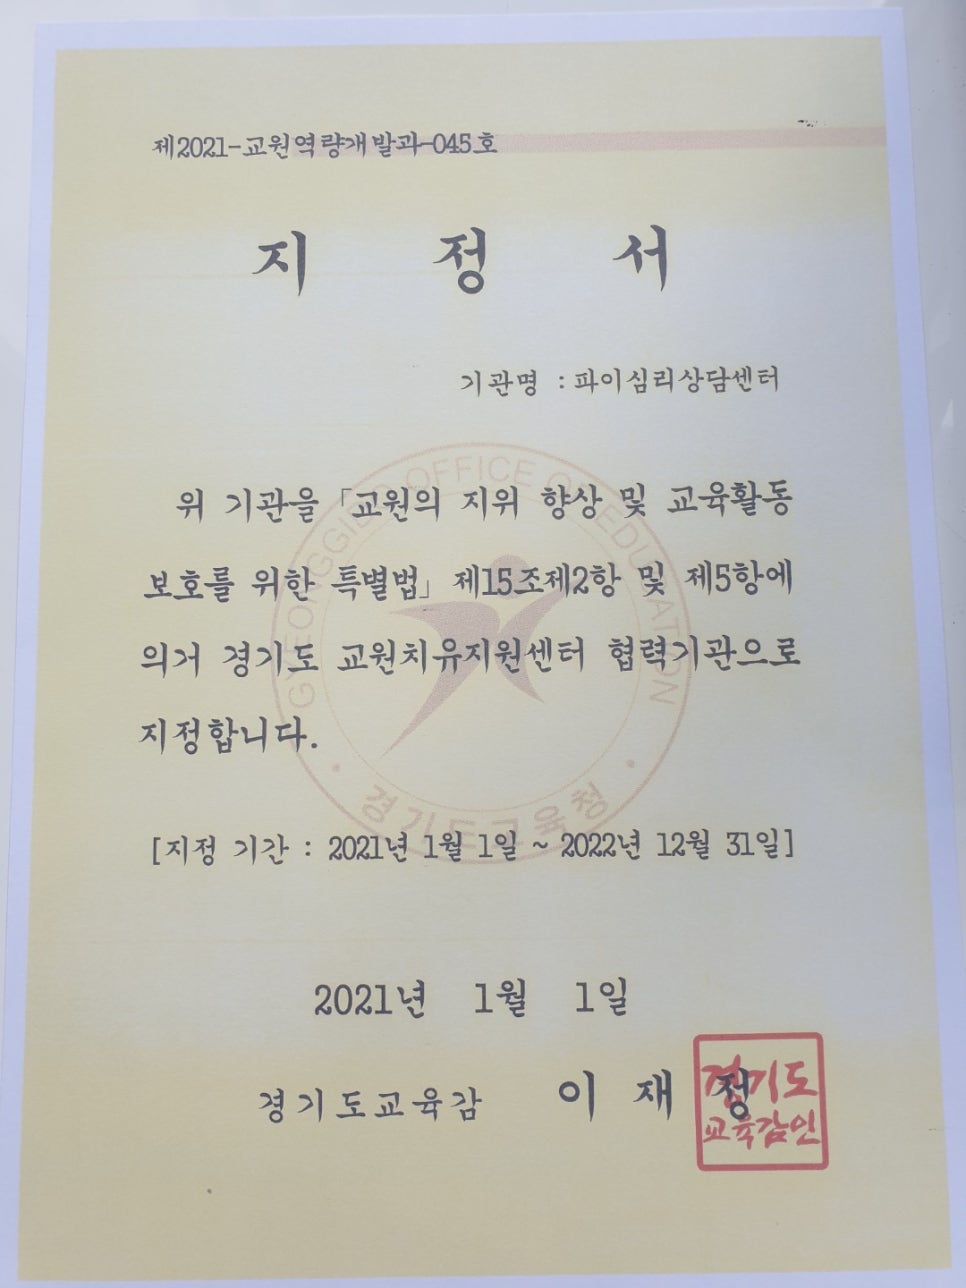 제2021-교원역량개발과-045호
지 정 서
기관명 : 파이심리상담센터
위 기관을 「교원의 지위 향상 및 교육활동
보호를 위한 특별법」 제15조제2항 및 제5항에
의거 경기도 교원치유지원센터 협력기관으로
지정합니다.
GYEONGGIDO OFFICE OF EDUCATION
경기도교육청
[지정 기간 : 2021년 1월 1일 ~ 2022년 12월 31일]
2021년 1월 1일
경기도교육감 이 재 정
경기도
교육감인